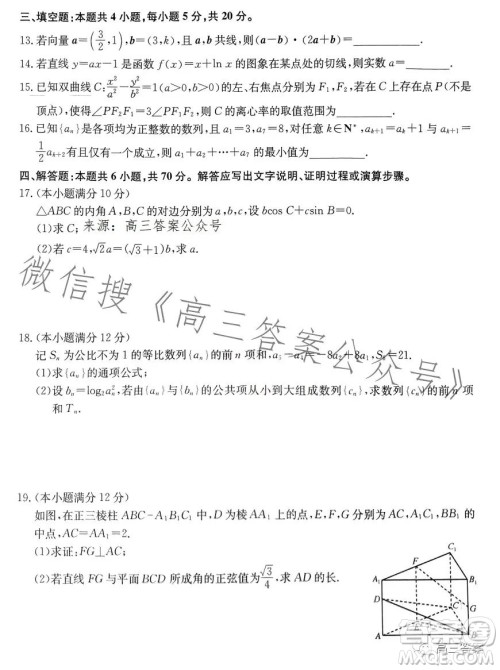 三、填空题:本题共4小题,每小题5分,共20分。
13.若向量a=(3/2,1),b=(3,k),且a,b共线,则(a-b)·(2a+b)=________.
14.若直线y=ax-1是函数f(x)=x+ln x的图象在某点处的切线,则实数a=________.
15.已知双曲线C:x²/a²-y²/b²=1(a>0,b>0)的左、右焦点分别为F₁,F₂,若在C上存在点P(不是
顶点),使得∠PF₂F₁=3∠PF₁F₂,则C的离心率的取值范围为________.
16.已知{aₙ}是各项均为正整数的数列,且a₁=3,a₇=8,对任意k∈N*,aₖ₊₁=aₖ+1与aₖ₊₁=
1/2 aₖ₊₂有且仅有一个成立,则a₁+a₂+…+a₇的最小值为________.
四、解答题:本题共6小题,共70分。解答应写出文字说明、证明过程或演算步骤。
17.(本小题满分10分)
△ABC的内角A,B,C的对边分别为a,b,c,设bcos C+csin B=0.
(1)求C;
来源:高三答案公众号
(2)若c=4,√2a=(√3+1)b,求a.
微信搜《高三答案公众号》
18.(本小题满分12分)
记Sₙ为公比不为1的等比数列{aₙ}的前n项和,a₅-a₄=-8a₂+8a₁,S₃=21.
(1)求{aₙ}的通项公式;
(2)设bₙ=log₂aₙ²,若由{aₙ}与{bₙ}的公共项从小到大组成数列{cₙ},求数列{cₙ}的前n项
和Tₙ.
19.(本小题满分12分)
如图,在正三棱柱ABC-A₁B₁C₁中,D为棱AA₁上的点,E,F,G分别为AC,A₁C₁,BB₁的
中点,AC=AA₁=2.
(1)求证:FG⊥AC;
(2)若直线FG与平面BCD所成角的正弦值为√3/4,求AD的长.
C₁
F
A₁
B₁
D
G
C
A
高三答案